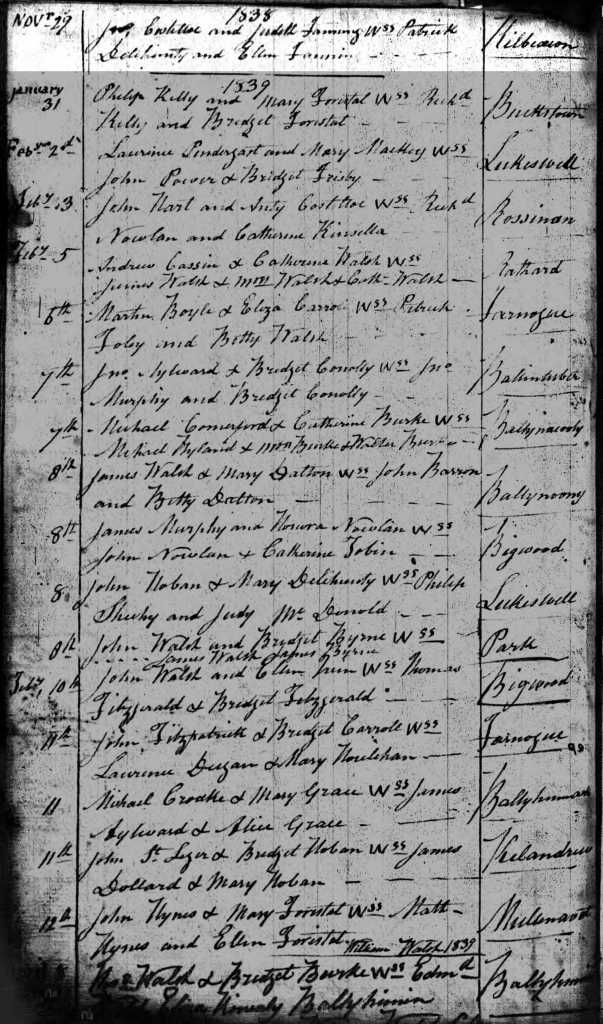 1838
Novr 29 Jno Costelloe and Judith Fanning Wss Patrick Kilbeacon
Delehunty and Ellen Fannin
1839
January 31 Philip Kelly and Mary Forestal Wss Richd Buckstown
Kelly and Bridget Forestal
Feby 2d Laurence Pendergast and Mary Mackey Wss Lukeswell
John Power & Bridget Frisby
Feby 3 John Hart and Anty Costloe Wss Richd Rossinan
Nowlan and Catherine Kinsella
Feby 5 Andrew Cassin & Catherine Walsh Wss Rathard
James Walsh & Walsh & Cath Walsh
6th Martin Boyle & Eliza Carroll Wss Patrick Farnogue
Foley and Betty Walsh
7th Jno Aylward & Bridget Conolly Wss Jno Ballintuber
Murphy and Bridget Conolly
7th Michael Comerford & Catherine Burke Wss Ballynacooly
Michael Hyland & Burke & Walter Burke
8th James Walsh & Mary Datton Wss John Barron Ballynoony
and Betty Datton
8th James Murphy and Honora Nowlan Wss Bigwood
John Nowlan & Catherine Tobin
8 John Hoban & Mary Delehunty Wss Philip Lukeswell
Sheehy and Judy Mc Donold
8th John Walsh and Bridget Byrne Wss Park
James Walsh James Byrne
Feby 10th John Walsh and Ellen Wss Thomas Bigwood
Fitzgerald & Bridget Fitzgerald
11th John Fitzpatrick & Bridget Carroll Wss Farnogue
Laurence Dugan & Mary Houlehan
11 Michael Croake & Mary Grace Wss James
Aylward & Alice Grace
11th John St Leger & Bridget Hoban Wss James Kilandrew
Dollard & Mary Hoban
12th John Hynes & Mary Forestal Wss Math Mulinavat
Hynes and Ellen Forestal
William Walsh 1839
Walsh & Bridget Burke Wss Edmd
Eliza Kinealy Ballyhimin